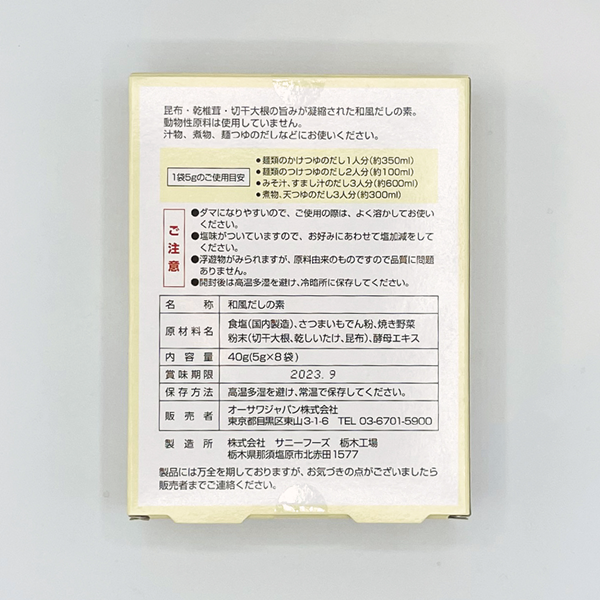 昆布・乾椎茸・切干大根の旨みが凝縮された和風だしの素。
動物性原料は使用していません。
汁物、煮物、麺つゆのだしなどにお使いください。
1袋5gのご使用目安
●麺類のかけつゆのだし1人分(約350ml)
●麺類のつけつゆのだし2人分(約100ml)
●みそ汁、すまし汁のだし3人分(約600ml)
●煮物、天つゆのだし3人分(約300ml)
ご注意
●ダマになりやすいので、ご使用の際は、よく溶かしてお使い
ください。
●塩味がついていますので、お好みにあわせて塩加減をして
ください。
●浮遊物がみられますが、原料由来のものですので品質に問題
ありません。
●開封後は高温多湿を避け、冷暗所に保存してください。
名称 和風だしの素
原材料名 食塩(国内製造)、さつまいもでん粉、焼き野菜
粉末(切干大根、乾しいたけ、昆布)、酵母エキス
内容量 40g(5g×8袋)
賞味期限 2023.9
保存方法 高温多湿を避け、常温で保存してください。
販売者 オーサワジャパン株式会社
東京都目黒区東山3-1-6 TEL 03-6701-5900
製造所 株式会社 サニーフーズ 栃木工場
栃木県那須塩原市北赤田1577
製品には万全を期しておりますが、お気づきの点がございましたら
販売者までご連絡ください。